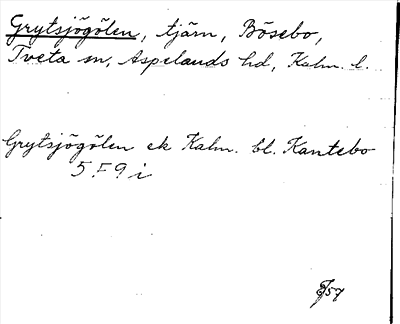 Grytsjögölen, tjärn, Bösebo,
Tveta sn, Aspelands hd, Kalm. l.
Grytsjögölen ek Kalm. bl. Kantebo
5 F 9 i
/57